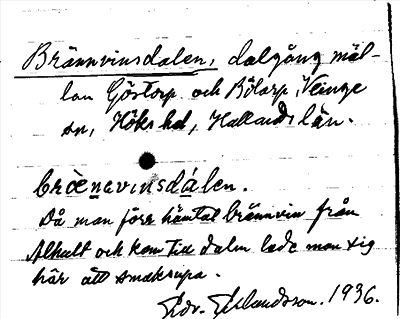 Brännvinsdalen, dalgång mel-
lan Göstorp och Bölarp, Veinge
sn, Höks hd, Hallands län.
bràenevinsdálen.
Då man förr hämtat brännvin från
Alhult och kom till dalen lade man sig
här att smaksupa.
Edv. Erlandsson. 1936.